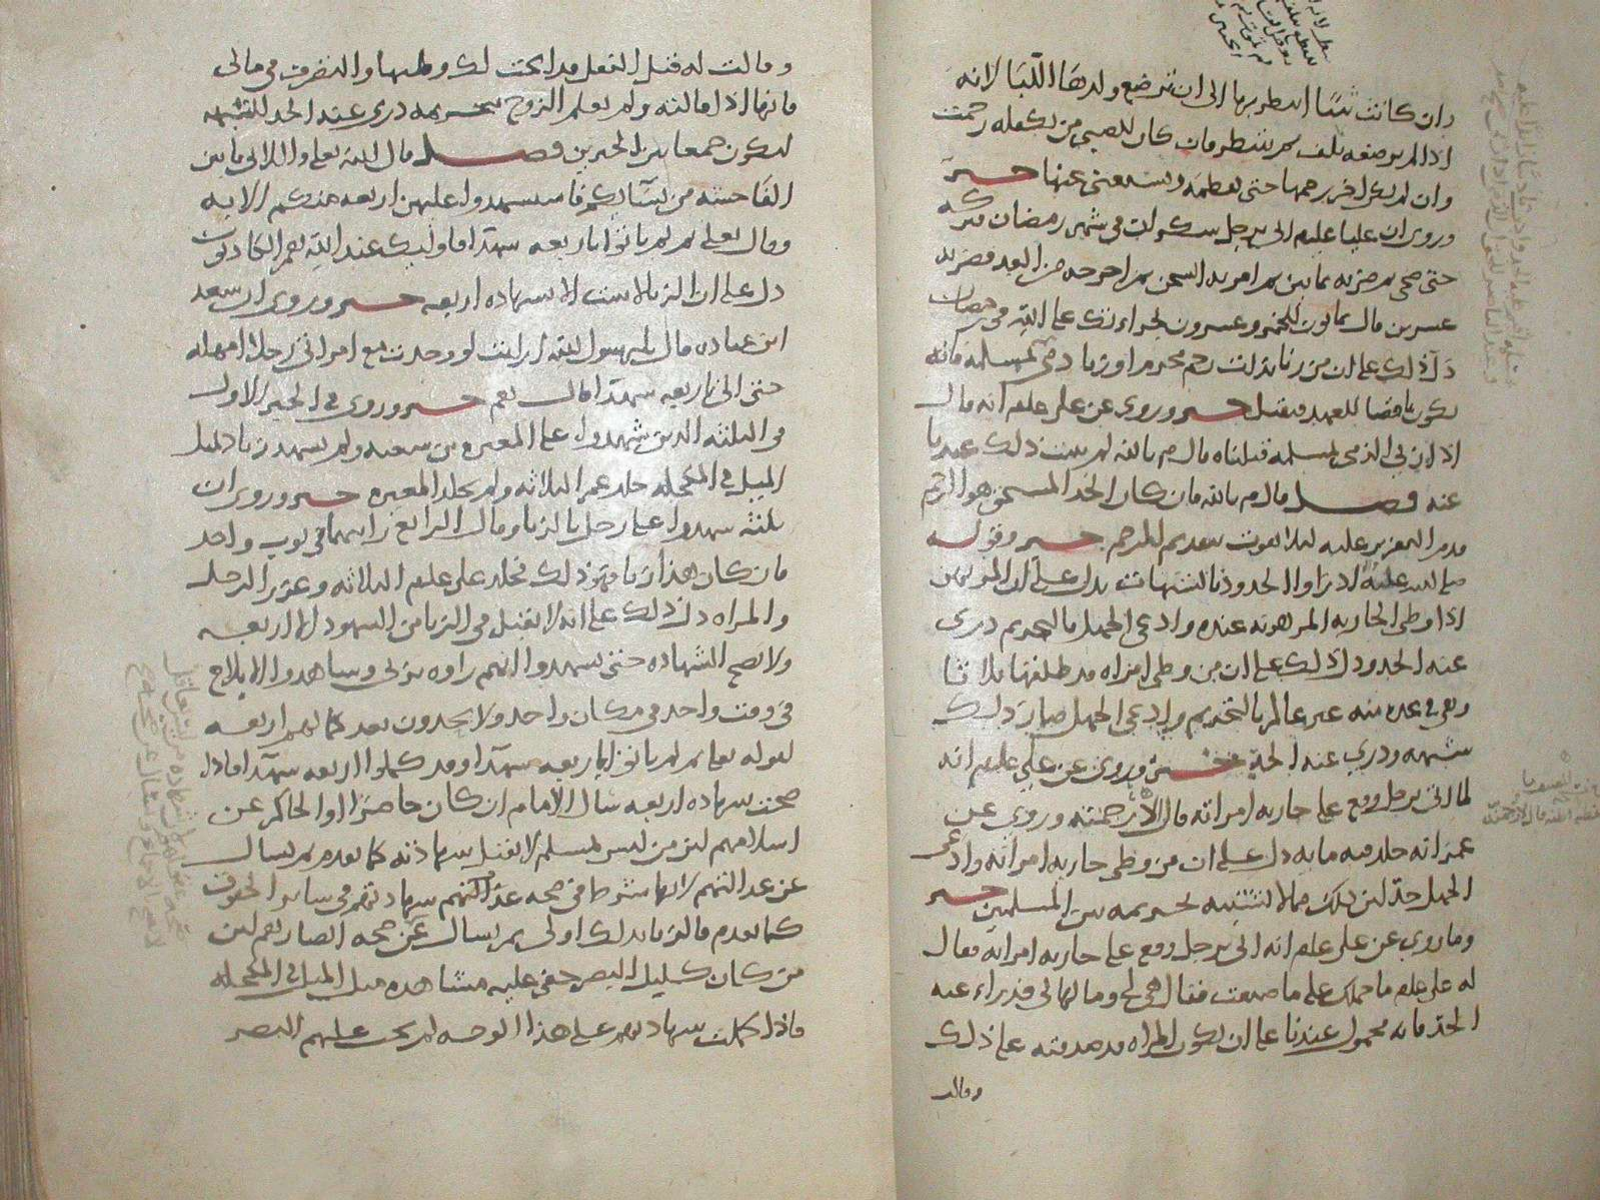 وان كانت شا انتظر بها الى ان ترضع ولدها اللبا لانه
اذا لم يرضعه تلف ثم ينتظر فان كان للصبي من يكفله رجمت
وان لم يكن اخر رجمها حتى تفطمه ويستغني عنها خبر
وروي ان عليا عليلم اتي برجل سكران في شهر رمضان فتركه
حتى صحى ثم ضربه ثمانين ثم امر به السجن ثم اخرجه من الغد فضربه
عشرين فقال ثمانون للخمر وعشرون لجراءتك على الله في رمضان
دل ذلك على ان من زنا بذات رحم محرم او زنا ذمي بمسلمة فانه
يكون ناقضا للعهد فيقتل خبر وروي عن علي علم انه قال
اذا زنى الذمي بمسلمة قتلناه قال م بالله لم يثبت ذلك عندنا
عنه فصل قال م بالله فان كان الحد المستحق هو الرجم
قدم التعزير عليه لئلا يفوت بتقديم الرجم خبر وقوله
صلى الله عليه ادرأوا الحدود بالشبهات يدل على ان المرتهن
اذا وطى الجارية المرهونة عنده وادعى الجهل بالتحريم دري
عنه الحد ودل ذلك على ان من وطى امراة قد طلقها ثلاثا
وهي في عدة منه غير عالم بالتحريم وادعى الجهل صار ذلك
شبهة ودري عنه الحد خبر وروي عن علي عليلم انه
لما اتي برجل وقع على جارية امراته قال لارجمنه وروي عن
عمر انه جلد فيه مايه دل على ان من وطى جارية امراته وادعى
الجهل حد لان ذلك مما لا يشتبه تحريمه بين المسلمين خبر
وما روي عن علي علم انه اتي برجل وقع على جارية امراته فقال
له علي علم ما حملك على ما صنعت فقال هي لي ومالها لي فدراء عنه
الحد فانه محمول عندنا على ان تكون المراة قد صدقته على ذلك
وقالت
وقالت له قبل الفعل قد ابحت لك وطيها والتصرف في مالي
فانها اذا قالته ولم يعلم الزوج بتحريمه دري عنه الحد للشبهة
ليكون جمعا بين الخبرين فصل قال الله تعالى واللاتي ياتين
الفاحشة من نسائكم فاستشهدوا عليهن اربعة منكم الاية
وقال تعالى ثم لم ياتوا باربعة شهدا فاوليك عند الله هم الكاذبون
دل على ان الزنا لا يثبت الا بشهادة اربعة خبر وروي ان سعد
ابن عبادة قال يا رسول الله ارايت لو وجدت مع امراتي رجلا امهله
حتى اتي باربعة شهدا قال نعم خبر وروي في الخبر الاول
في الثلثة الذين شهدوا على المغيرة بن شعبة ولم يشهد زياد مثل
الميل في المكحلة جلد عمر الثلاثة ولم يجلد المغيرة خبر وروي ان
ثلثة شهدوا على رجل بالزنا وقال الرابع رايتهما في ثوب واحد
فان كان هذا زنا فهو ذلك فجلد علي علم الثلاثة وعزر الرجل
والمراة دل ذلك على انه لا يقبل في الزنا من الشهود الا اربعة
ولا تصح الشهادة حتى يشهدوا انهم راوه يزني وشاهدوا الايلاج
في وقت واحد في مكان واحد ولا يحدون بعد كمالهم اربعة
لقوله تعالى ثم لم ياتوا باربعة شهدا وقد كملوا اربعة شهدا فاذا
صحت شهادة اربعة سال الامام ان كان حاضرا او الحاكم عن
اسلامهم لان من ليس بمسلم لا تقبل شهادته كما تقدم ثم يسال
عن عدالتهم لانها شرط في صحة شهادتهم في سائر الحقوق
كما تقدم فالزنا بذلك اولى ثم يسال عن صحة ابصارهم لان
من كان كليل البصر خفي عليه مشاهدة مثل الميل في المكحلة
فاذا كملت شهادتهم على هذا الوجه لم يجب عليهم البصر